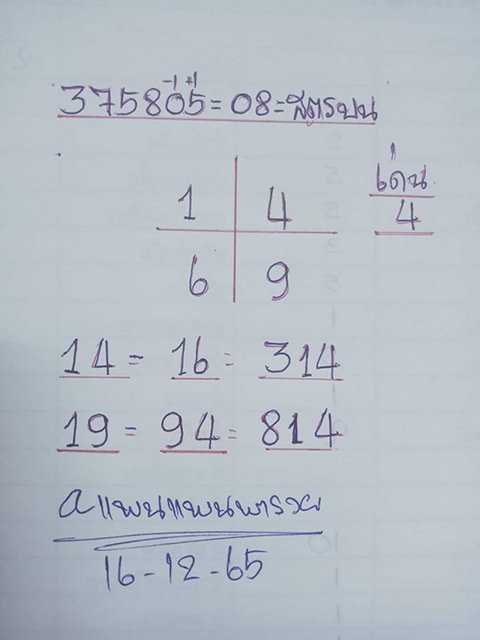 -1 +1
375805=08=สูตรบน
1 4
6 9
เด่น
4
14= 16= 314
19= 94= 814
aแพนแพนพารวย
16-12-65